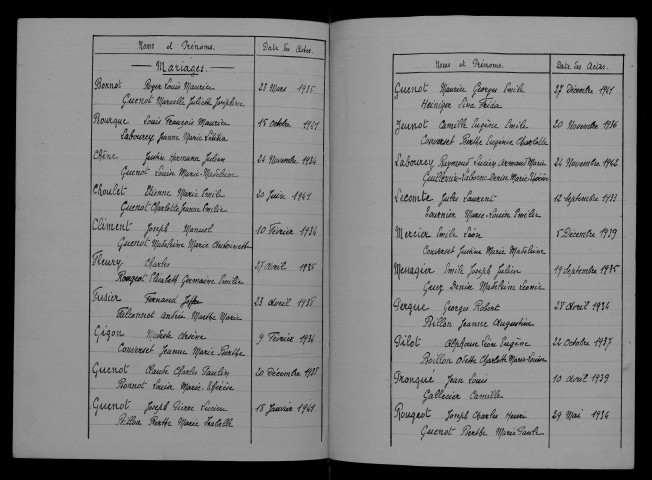 Noms et Prénoms. Date des Actes.
Mariages.
Bonnot Roger Louis Maurice 23 Mars 1935
Guenot Marcelle Juliette Joséphine
Bourque Louis François Maurice 15 octobre 1941
Labourey Jeanne Marie
Chêne Justin Hermann Julien 24 Novembre 1934
Guenot Louise Marie-Madeleine
Choulet Etienne Marie Emile 20 Juin 1941
Guenot Charlotte Jeanne Emilie
Clément Joseph Manuel 10 Février 1934
Guenot Madeleine Marie Antoinette
Fleury Charles 27 Avril 1935
Rougeot Elisabeth Germaine Emilie
Fusier Fernand 23 Avril 1938
Falconnet Andrée Marthe Marie
Gigon Modeste Arsène 9 Février 1934
Converset Jeanne Marie Berthe
Guenot Claude Charles Paulin 20 Décembre 1938
Bonnot Louise Marie
Guenot Joseph Pierre Lucien 18 Janvier 1941
Billon Berthe Marie Isabelle
Noms et Prénoms. Date des Actes.
Guenot Maurice Georges Emile 27 Décembre 1941
Heiniger Lina Frida
Jeunot Camille Eugène Emile 20 Novembre 1936
Converset Berthe Eugénie Charlotte
Labourey Raymond Lucien Armand Marie 24 Novembre 1942
Denise Marie
Lecomte Jules Laurent 12 Septembre 1933
Tournier Marie-Louise Emilie
Mercier Emile Léon 5 Décembre 1939
Converset Justine Marie Madeleine
Messagier Emile Joseph Julien 19 Septembre 1935
Denise Madeleine Léonie
Pergue Georges Robert 28 Avril 1934
Billon Jeanne Augustine
Pilot Alphonse Eugène 22 octobre 1937
Boillon Odette Charlotte Marie-Louise
Pronque Jean Louis 10 Avril 1939
Gallecier Camille
Rougeot Joseph Charles Henri 29 Mai 1934
Guenot Berthe Marie Paule